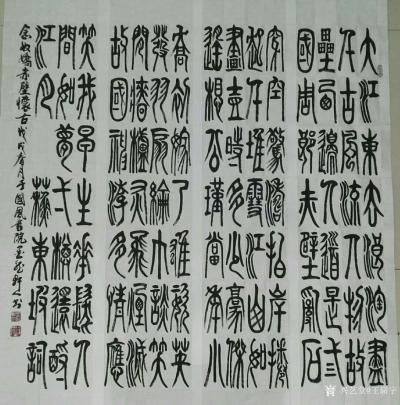 大江東去浪淘盡
千古風流人物故
壘西邊人道是三
國周郎赤壁亂石
穿空驚濤拍岸捲
起千堆雪江山如
畫壹時多少豪傑
遙想公瑾當年小
喬初嫁了雄姿英
發羽扇綸巾談笑
間檣櫓灰飛煙滅
故國神遊多情應
笑我早生華髮人
間如夢一樽還酹
江月 蘇東坡詞
念奴嬌赤壁懷古戊戌春月于國風書院